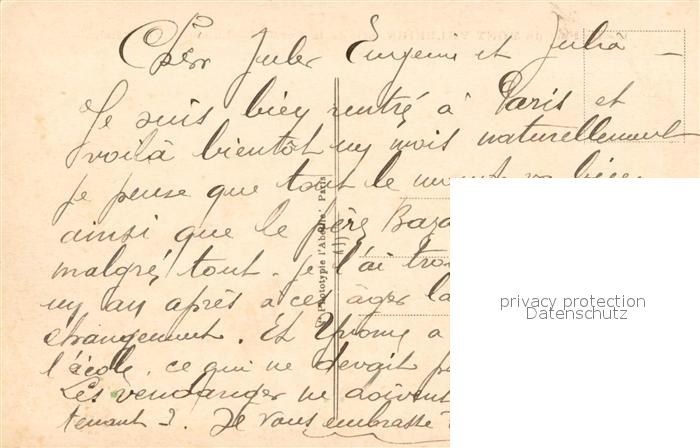 Chers Jules Eugenie et Julia –
Je suis bien rentré à Paris et
voilà bientôt un mois naturellement
je pense que tout le monde va bien
ainsi que le père
malgré tout. je l'ai
un an après à ces âges la
changement. Et Yvonne a
l'école, ce qui ne devait
Les vendanges ne doivent
tenant ?. Je vous embrasse
Phototypie l'Abeille, Paris
privacy protection
Datenschutz